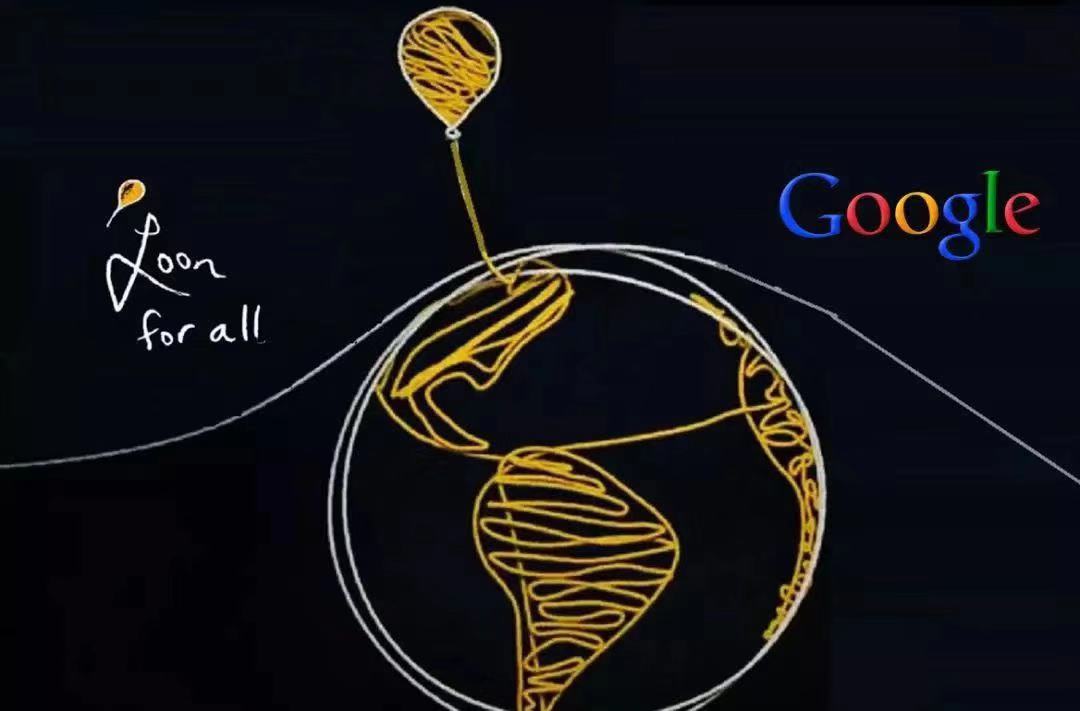 Loon
for all
Google